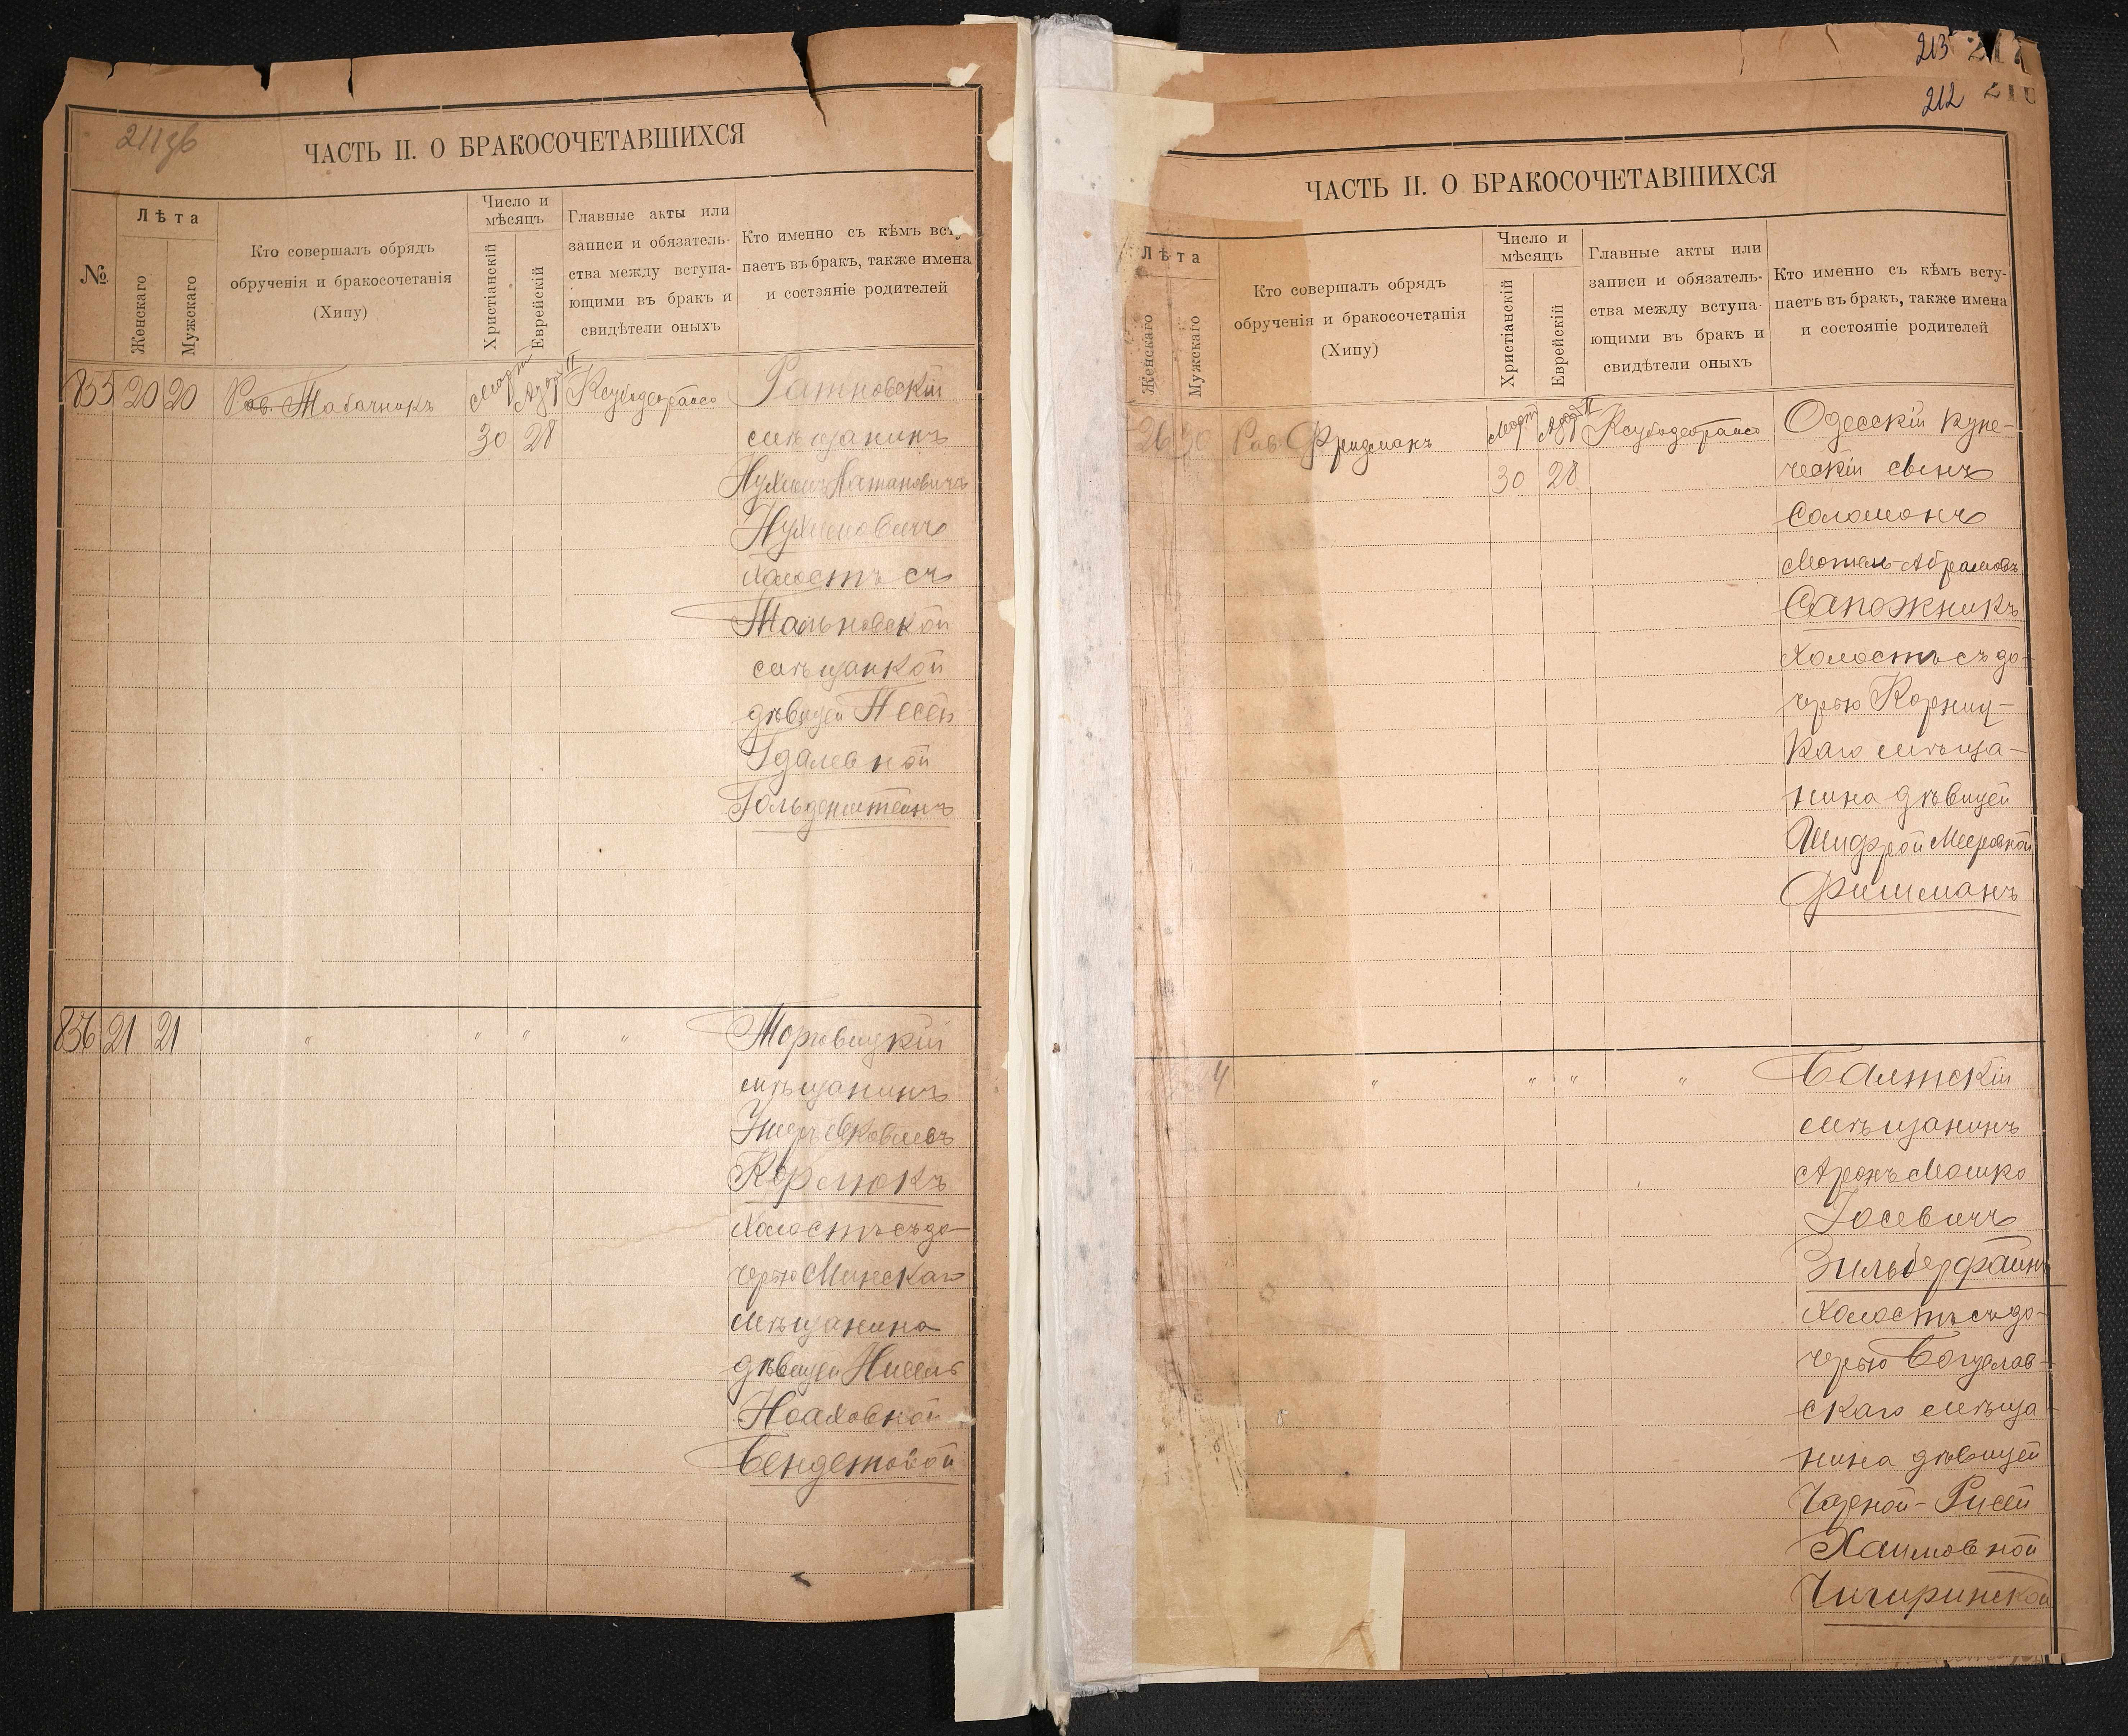 211 об
ЧАСТЬ II. О БРАКОСОЧЕТАВШИХСЯ
№
Лѣта
Женскаго
Мужскаго
Кто совершалъ обрядъ
обрученія и бракосочетанія
(Хипу)
Число и
мѣсяцъ
Христіанскій
Еврейскій
Главные акты или
записи и обязатель-
ства между вступа-
ющими въ бракъ и
свидѣтели оныхъ
Кто именно съ кѣмъ всту
паетъ въ бракъ, также имена
и состояніе родителей
855 20 20 Рав. Табачникъ Мартъ Адаръ II
30 28
Ратновскій
мѣщанинъ
Нухимъ Натановичъ
Нухимовичъ
холостъ съ
Тальновской
мѣщанкой
дѣвицей Песей
Гдалевной
Гольденштейнъ
856 21 21 " " " "
Торговицкій
мѣщанинъ
Ушеръ Яковлевъ
Кормлюкъ
холостъ съ до-
черью Минскаго
мѣщанина
дѣвицей
Ноаховной
Бендетовой
213
212
ЧАСТЬ II. О БРАКОСОЧЕТАВШИХСЯ
Лѣта
Женскаго
Мужскаго
Кто совершалъ обрядъ
обрученія и бракосочетанія
(Хипу)
Число и
мѣсяцъ
Христіанскій
Еврейскій
Главные акты или
записи и обязатель-
ства между вступа-
ющими въ бракъ и
свидѣтели оныхъ
Кто именно съ кѣмъ всту-
паетъ въ бракъ, также имена
и состояніе родителей
26 30 Рав. Фридманъ Мартъ Адаръ II
30 28
Одесскій купе-
ческій сынъ
Соломонъ
Мотель-Абрамовъ
Сапожникъ
холостъ съ до-
черью Корниц-
каго мѣща-
нина дѣвицей
Шифрой Мееровной
Фишманъ
4 " " " "
Балтскій
мѣщанинъ
Аронъ Мошко
Іосевичъ
Зильберфайнъ
холостъ съ до-
черью Богуслав-
скаго мѣща-
нина дѣвицей
Чарной-Рисей
Хаимовной
Чигиринской